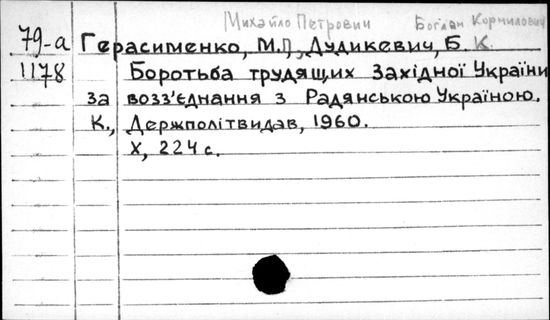 Михайло Петрович Богдан Корнилович
79-а Герасименко, М.П., Дудикевич, Б. К.
1178 Боротьба трудящих Західної України
за возз'єднання з Радянською Україною.
К., Держполітвидав, 1960.
X, 224 с.